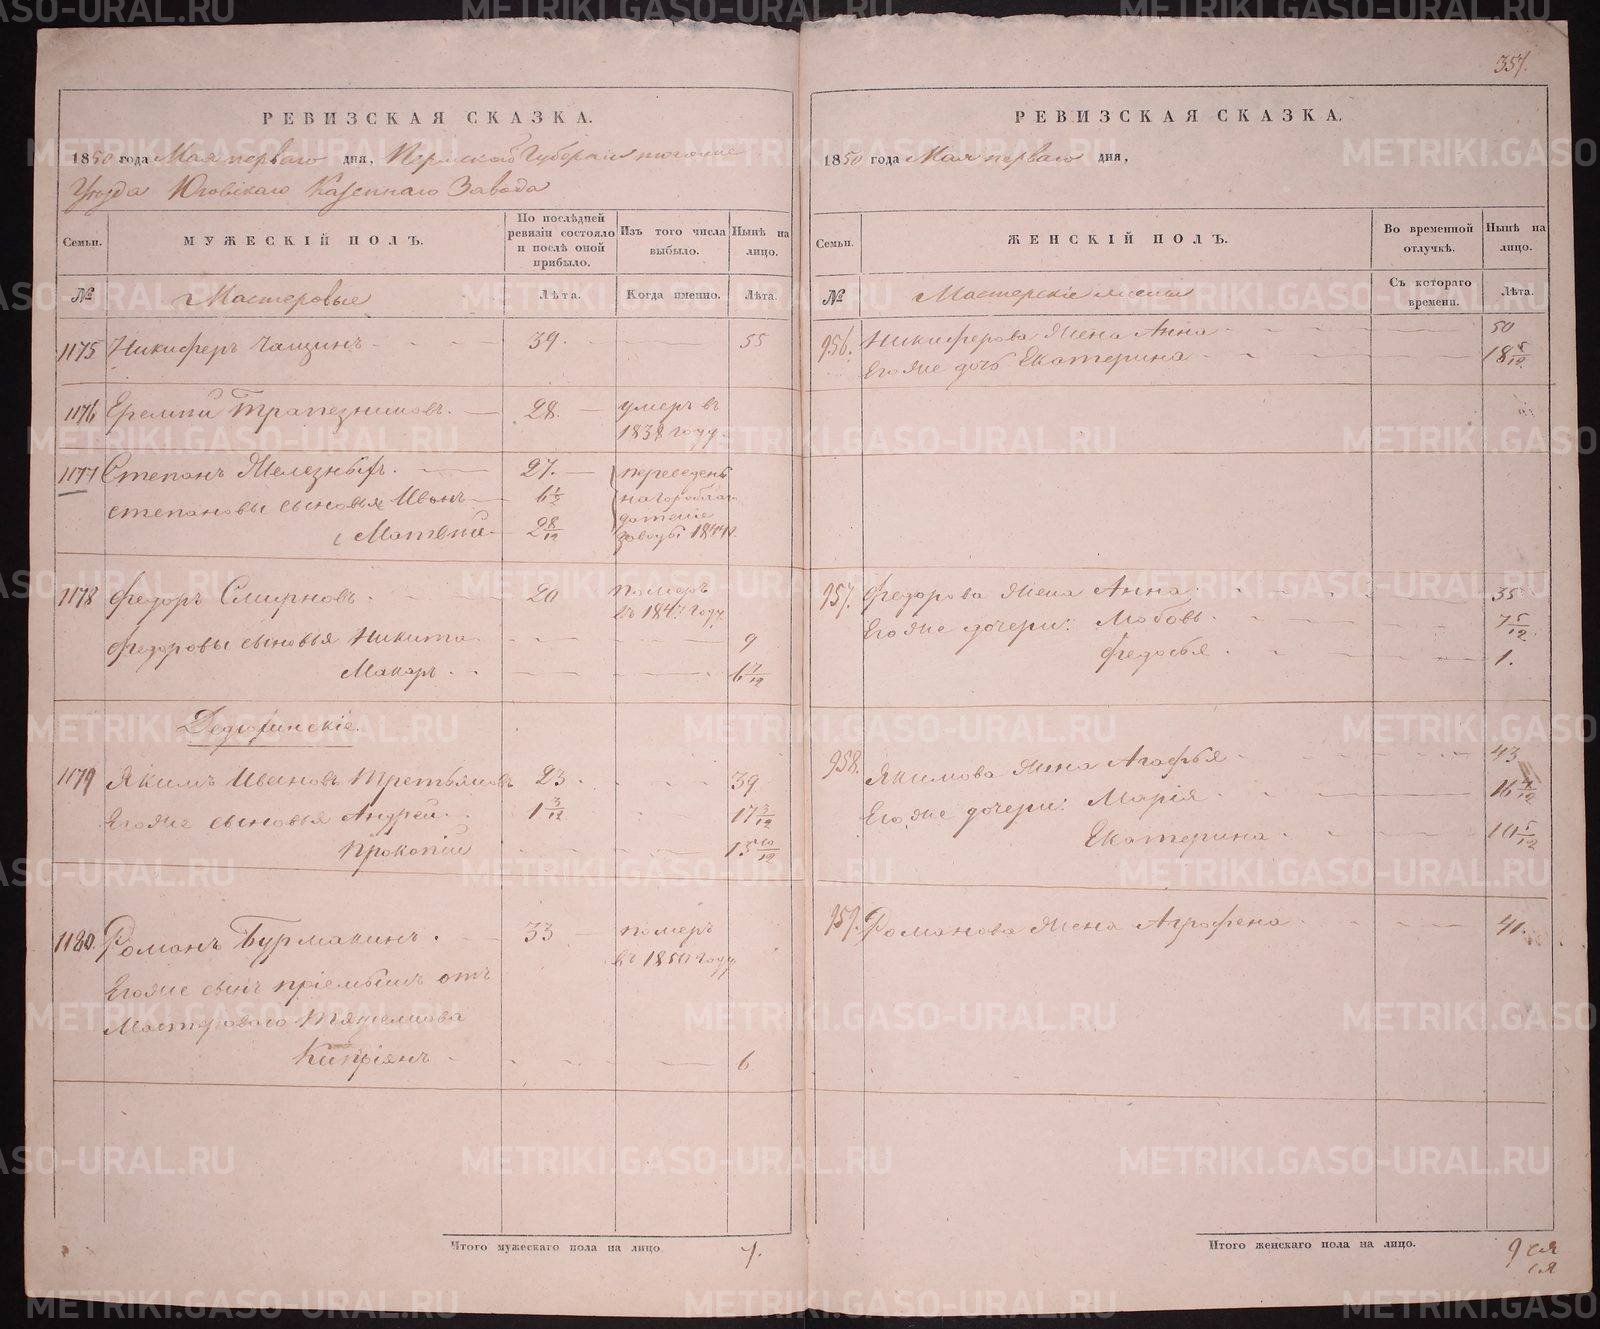 357.
РЕВИЗСКАЯ СКАЗКА.
1850 года Мая перваго дня, Пермской Губернии тогоже
Уезда Юговскаго Казеннаго Завода
Семьи. МУЖЕСКІЙ ПОЛЪ. По послѣдней ревизіи состояло и послѣ оной прибыло. Изъ того числа выбыло. Нынѣ на лицо.
№ Мастеровые Лѣта. Когда именно. Лѣта.
1175 Никиферъ Чащинъ 39. 55
1176 Еремѣй Трапезниковъ. 28. умеръ въ
1838 году.
1177 Степанъ Железныхъ. 27. переведены
Степановы сыновья Иванъ 6 1/2 на
Матвѣй 2 8/12 заводъ 1844
1178 Федоръ Смирновъ. 20 померъ
въ 1847 году
Федоровы сыновья Никита 9
Макаръ 6 7/12
Дедюхинскіе.
1179 Якимъ Ивановъ Третьяковъ 23 39
Егоже сыновья Андрей 1 3/12 17 3/12
Прокопій 13 10/12
1180. Романъ Бурмакинъ. 33 померъ
въ 1850 году
Егоже сынъ пріемышъ отъ
Мастероваго
Кипріянъ 6
Итого мужескаго пола на лицо 7.
РЕВИЗСКАЯ СКАЗКА.
1850 года Мая перваго дня,
Семьи. ЖЕНСКІЙ ПОЛЪ. Во временной отлучкѣ. Нынѣ на лицо.
№ Мастерскіе жены Съ котораго времени. Лѣта.
956. Никиферова жена Анна 50
Егоже дочь Екатерина 18 5/12
957. Федорова жена Анна 35
Егоже дочери: Любовь 7 5/12
Федосья 1.
958. Якимова жена Агафья 43
Егоже дочери: Марія 16 4/12
Екатерина 10 5/12
959. Романова жена Аграфена 41.
Итого женскаго пола на лицо. 9
METRIKI.GASO-URAL.RU